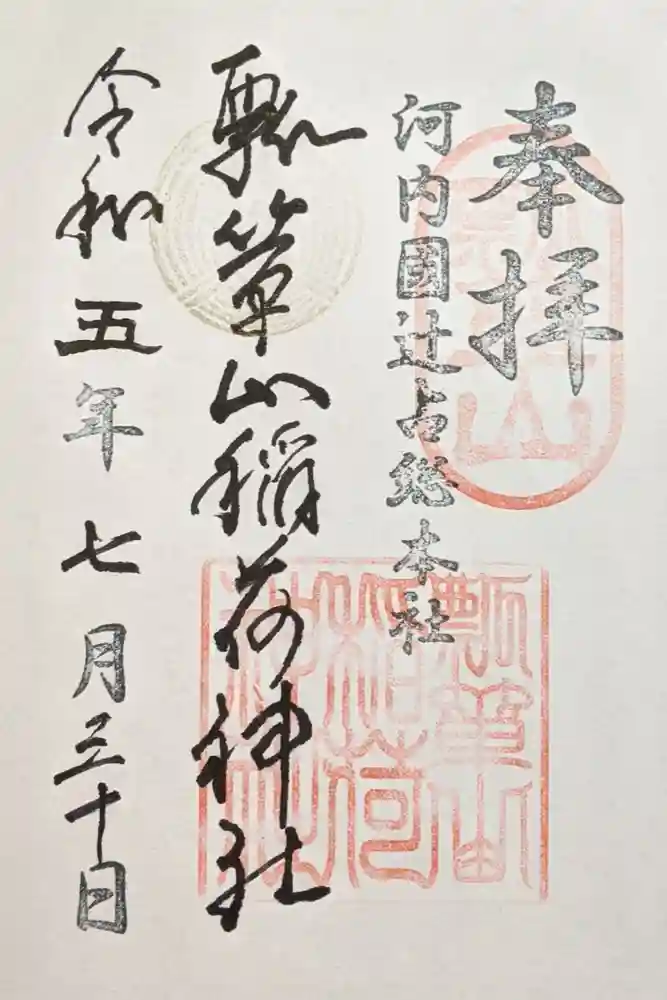 奉拝
河内國辻占総本社
瓢箪山稲荷神社
令和五年七月三十日
瓢箪山
稲荷
神社